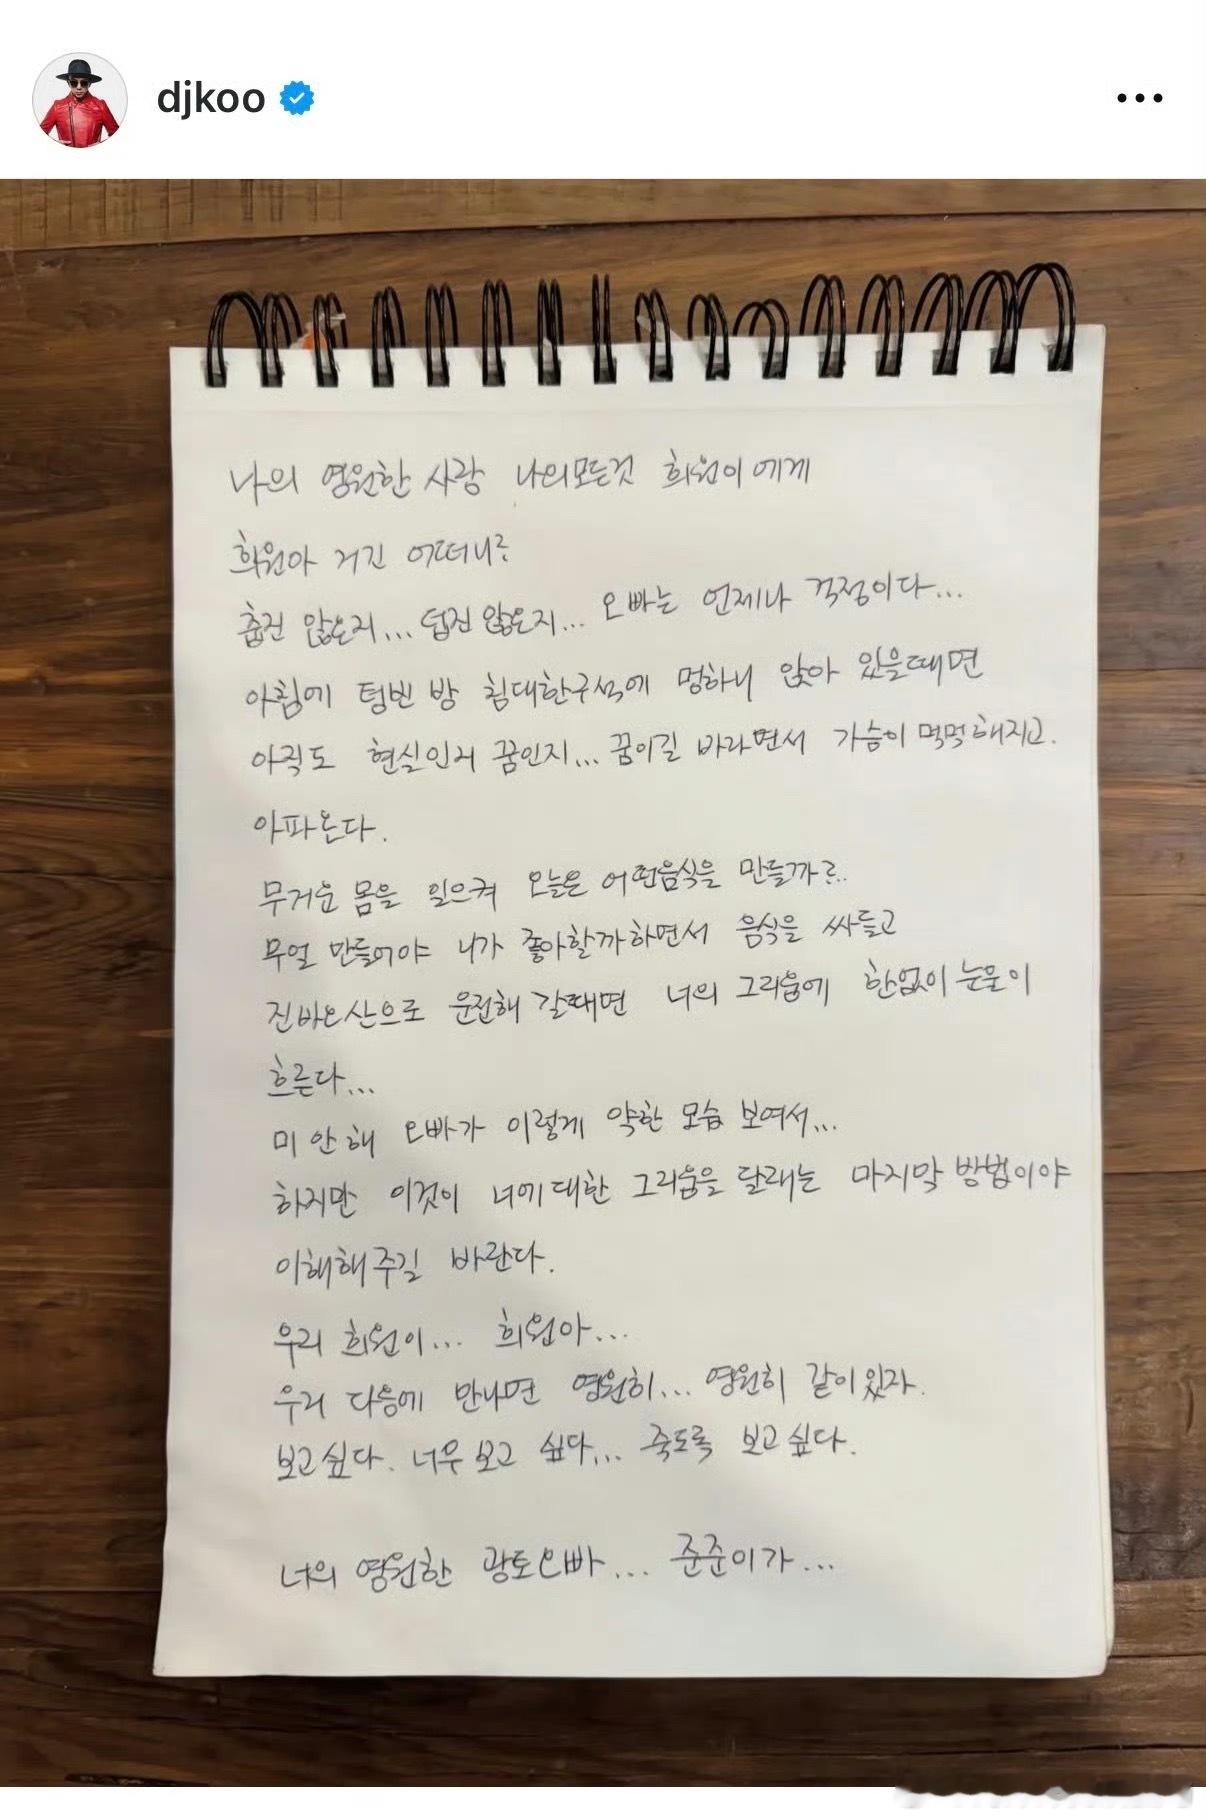 djkoo
나의 영원한 사랑 나의모든것 희원이에게
희원아 거긴 어떠니?
춥진 않은지... 덥진 않은지... 오빠는 언제나 걱정이다...
아침에 텅빈 방 침대한구석에 멍하니 앉아 있을때면
아직도 현실인지 꿈인지... 꿈이길 바라면서 가슴이 먹먹해지고.
아파온다.
무거운 몸을 일으켜 오늘은 어떤음식을 만들까?..
무얼 만들어야 니가 좋아할까하면서 음식을 싸들고
진바오산으로 운전해 갈때면 너의 그리움에 한없이 눈물이
흐른다...
미안해 오빠가 이렇게 약한 모습 보여서...
하지만 이것이 너에대한 그리움을 달래는 마지막 방법이야
이해해주길 바란다.
우리 희원이... 희원아...
우리 다음에 만나면 영원히... 영원히 같이있자.
보고싶다. 너무 보고 싶다... 죽도록 보고싶다.
너의 영원한 광토오빠... 준준이가...